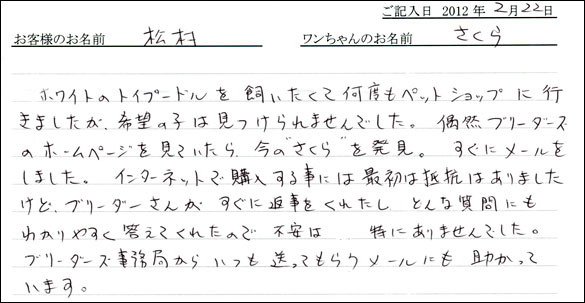 ご記入日 2012年2月22日
お客様のお名前 松村 ワンちゃんのお名前 さくら
ホワイトのトイプードルを飼いたくて何度もペットショップに行
きましたが、希望の子は見つけられませんでした。偶然ブリーダーズ
のホームページを見ていたら、今の"さくら"を発見。すぐにメールを
しました。インターネットで購入する事には最初は抵抗はありました
けど、ブリーダーさんがすぐに返事をくれたし どんな質問にも
わかりやすく答えてくれたので 不安は 特にありませんでした。
ブリーダーズ事務局から いつも 送ってもらうメールにも 助かって
います。